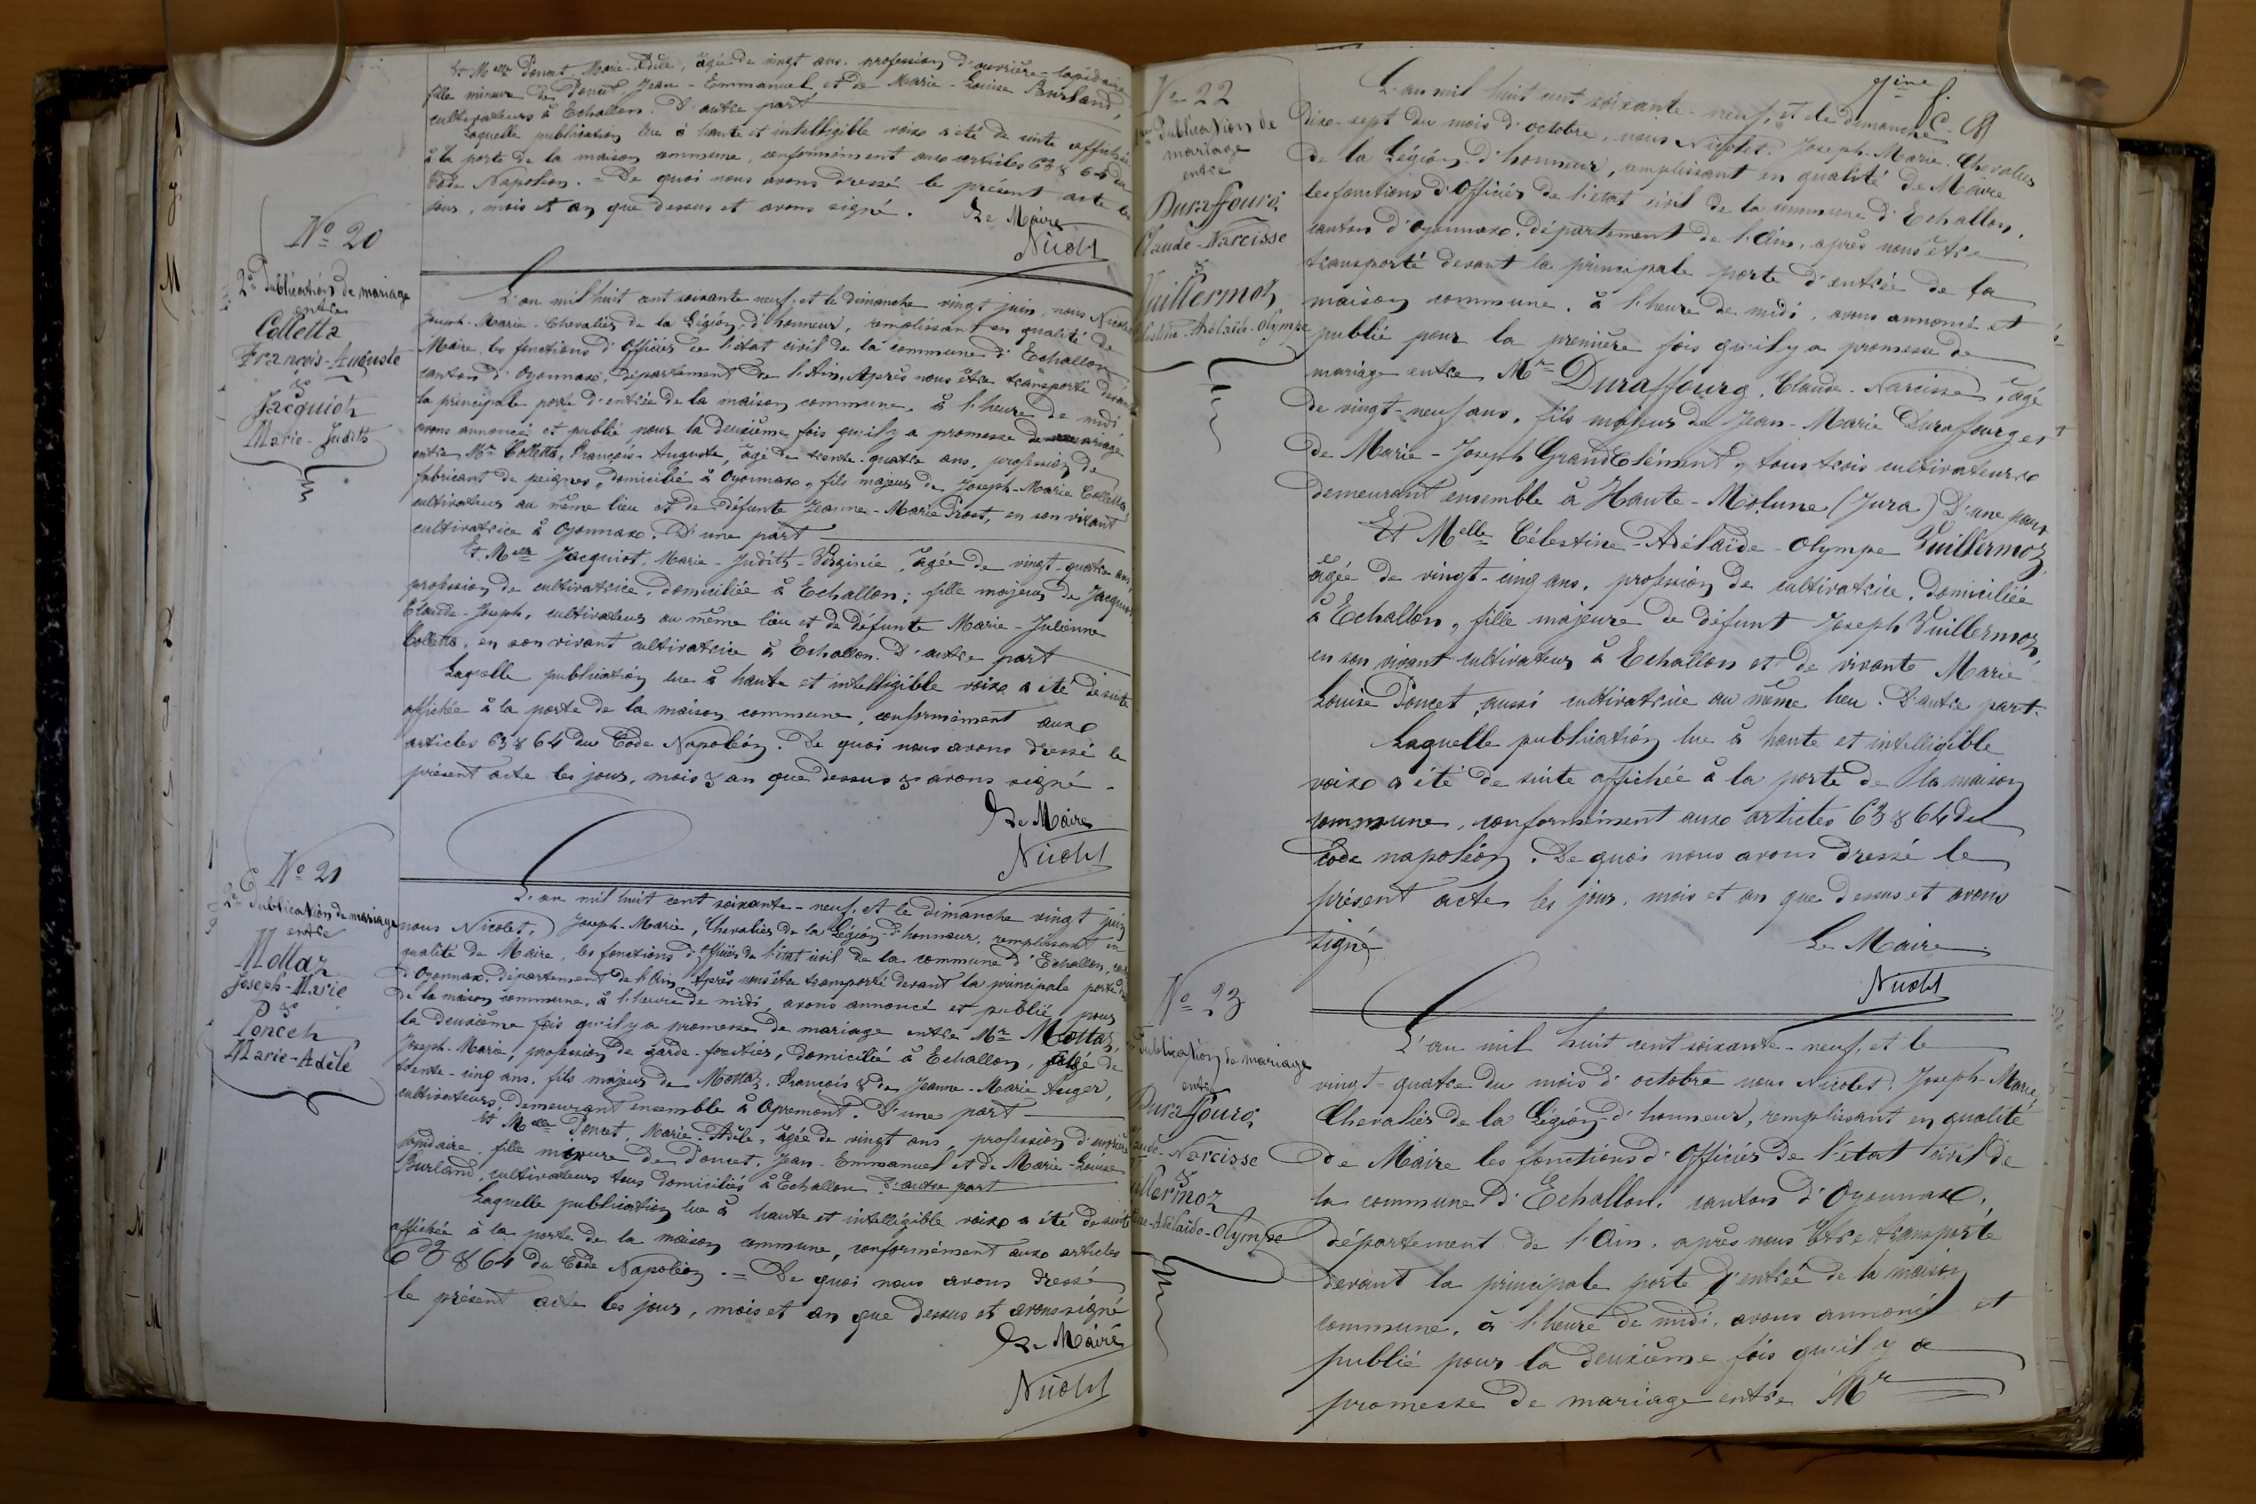 Et Melle Poncet, Marie-Adèle, âgée de vingt ans, profession d'ouvrière-lapidaire
fille mineure de Poncet Jean-Emmanuel et de Marie-Louise Burland,
cultivateurs à Echallon. D'autre part
Laquelle publication lue à haute et intelligible voix a été de suite affichée
à la porte de la maison commune, conformément aux articles 63 & 64 du
Code Napoléon. = De quoi nous avons dressé le présent acte les
jour, mois et an que dessus et avons signé.
Le Maire
Nicolet
No 20
2e Publication de mariage
entre
Colletta
François-Auguste
&
Jacquiot
Marie-Judith
L'an mil huit cent soixante neuf, et le dimanche vingt juin, nous Nicolet
Joseph-Marie-Chevalier de la Légion d'honneur, remplissant en qualité de
Maire, les fonctions d'Officier de l'état civil de la commune d'Echallon
canton d'Oyonnax, département de l'Ain, Après nous être transporté devant
la principale porte d'entrée de la maison commune, à l'heure de midi
avons annoncé et publié pour la deuxième fois qu'il y a promesse de mariage
entre Mr Colletta, François-Auguste, âgé de trente-quatre ans, profession de
fabricant de peignes, domicilié à Oyonnax, fils majeur de Joseph-Marie Colletta
cultivateur au même lieu et de défunte Jeanne-Marie Prost, en son vivant
cultivatrice à Oyonnax. D'une part
Et Melle Jacquiot, Marie-Judith-Virginie, âgée de vingt-quatre ans,
profession de cultivatrice, domiciliée à Echallon; fille majeure de Jacquiot
Claude-Joseph, cultivateur au même lieu et de défunte Marie-Julienne
Colletta, en son vivant cultivatrice à Echallon. D'autre part
Laquelle publication lue à haute et intelligible voix a été de suite
affichée à la porte de la maison commune, conformément aux
articles 63 & 64 du Code Napoléon. De quoi nous avons dressé le
présent acte les jour, mois & an que dessus & avons signé.
Le Maire
Nicolet
No 21
2e Publication de mariage
entre
Mottaz
Joseph-Marie
&
Poncet
Marie-Adèle
L'an mil huit cent soixante-neuf, et le dimanche vingt juin
nous Nicolet, Joseph-Marie, Chevalier de la Légion d'honneur, remplissant en
qualité de Maire, les fonctions d'Officier de l'état civil de la commune d'Echallon,
d'Oyonnax, département de l'Ain, Après nous être transporté devant la principale porte
de la maison commune, à l'heure de midi, avons annoncé et publié pour
la deuxième fois qu'il y a promesse de mariage entre Mr Mottaz,
Joseph-Marie, profession de garde-forestier, domicilié à Echallon, âgé de
trente-cinq ans, fils majeur de Mottaz, François & de Jeanne-Marie Auger,
cultivateurs, demeurant ensemble à Apremont. D'une part
Et Melle Poncet, Marie-Adèle, âgée de vingt ans, profession d'ouvrière
lapidaire, fille mineure de Poncet, Jean-Emmanuel et de Marie-Louise
Burland, cultivateurs tous domiciliés à Echallon. D'autre part
Laquelle publication lue à haute et intelligible voix a été de suite
affichée à la porte de la maison commune, conformément aux articles
63 & 64 du Code Napoléon. = De quoi nous avons dressé
le présent acte les jour, mois et an que dessus et avons signé
Le Maire
Nicolet
No 22
Publication de
mariage
entre
Duraffourg
Claude-Narcisse
&
Vuillermoz
Célestine-Adélaïde-Olympe
L'an mil huit cent soixante-neuf, et le dimanche
dix-sept du mois d'octobre, nous Nicolet, Joseph-Marie, Chevalier
de la Légion d'honneur, remplissant en qualité de Maire
les fonctions d'Officier de l'état civil de la commune d'Echallon,
canton d'Oyonnax, département de l'Ain, après nous être
transporté devant la principale porte d'entrée de la
maison commune, à l'heure de midi, avons annoncé et
publié pour la première fois qu'il y a promesse de
mariage entre Mr Duraffourg, Claude-Narcisse, âgé
de vingt-neuf ans, fils majeur de Jean-Marie Duraffourg et
de Marie-Joseph GrandClément, tous trois cultivateurs
demeurant ensemble à Haute-Molune (Jura) D'une part
Et Melle Célestine-Adélaïde-Olympe Vuillermoz,
âgée de vingt-cinq ans, profession de cultivatrice, domiciliée
à Echallon, fille majeure de défunt Joseph Vuillermoz,
en son vivant cultivateur à Echallon et de vivante Marie
Louise Poncet, aussi cultivatrice au même lieu. D'autre part.
Laquelle publication lue à haute et intelligible
voix a été de suite affichée à la porte de la maison
commune, conformément aux articles 63 & 64 du
Code napoléon. De quoi nous avons dressé le
présent acte les jour, mois et an que dessus et avons
signé
Le Maire
Nicolet
No 23
Publication de mariage
entre
Duraffourg
Claude-Narcisse
&
Vuillermoz
Adélaïde-Olympe
L'an mil huit cent soixante-neuf, et le
vingt-quatre du mois d'octobre nous Nicolet, Joseph-Marie,
Chevalier de la Légion d'honneur, remplissant en qualité
de Maire les fonctions d'Officier de l'état civil de
la commune d'Echallon, canton d'Oyonnax,
département de l'Ain, après nous être transporté
devant la principale porte d'entrée de la maison
commune, à l'heure de midi, avons annoncé et
publié pour la deuxième fois qu'il y a
promesse de mariage entre Mr